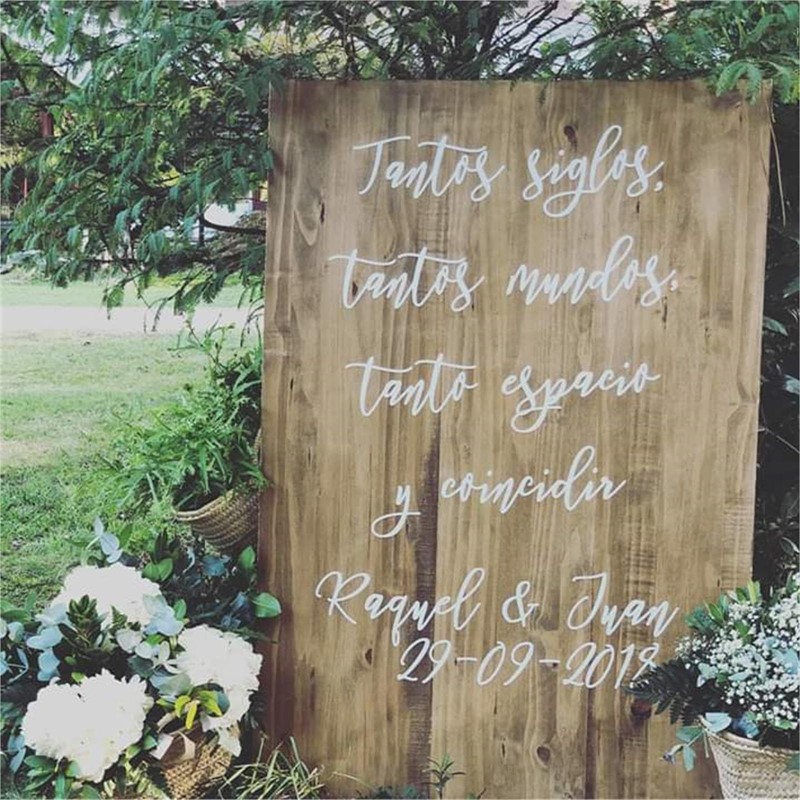 Tantos siglos,
tantos mundos,
tanto espacio
y coincidir
Raquel & Juan
29-09-2018